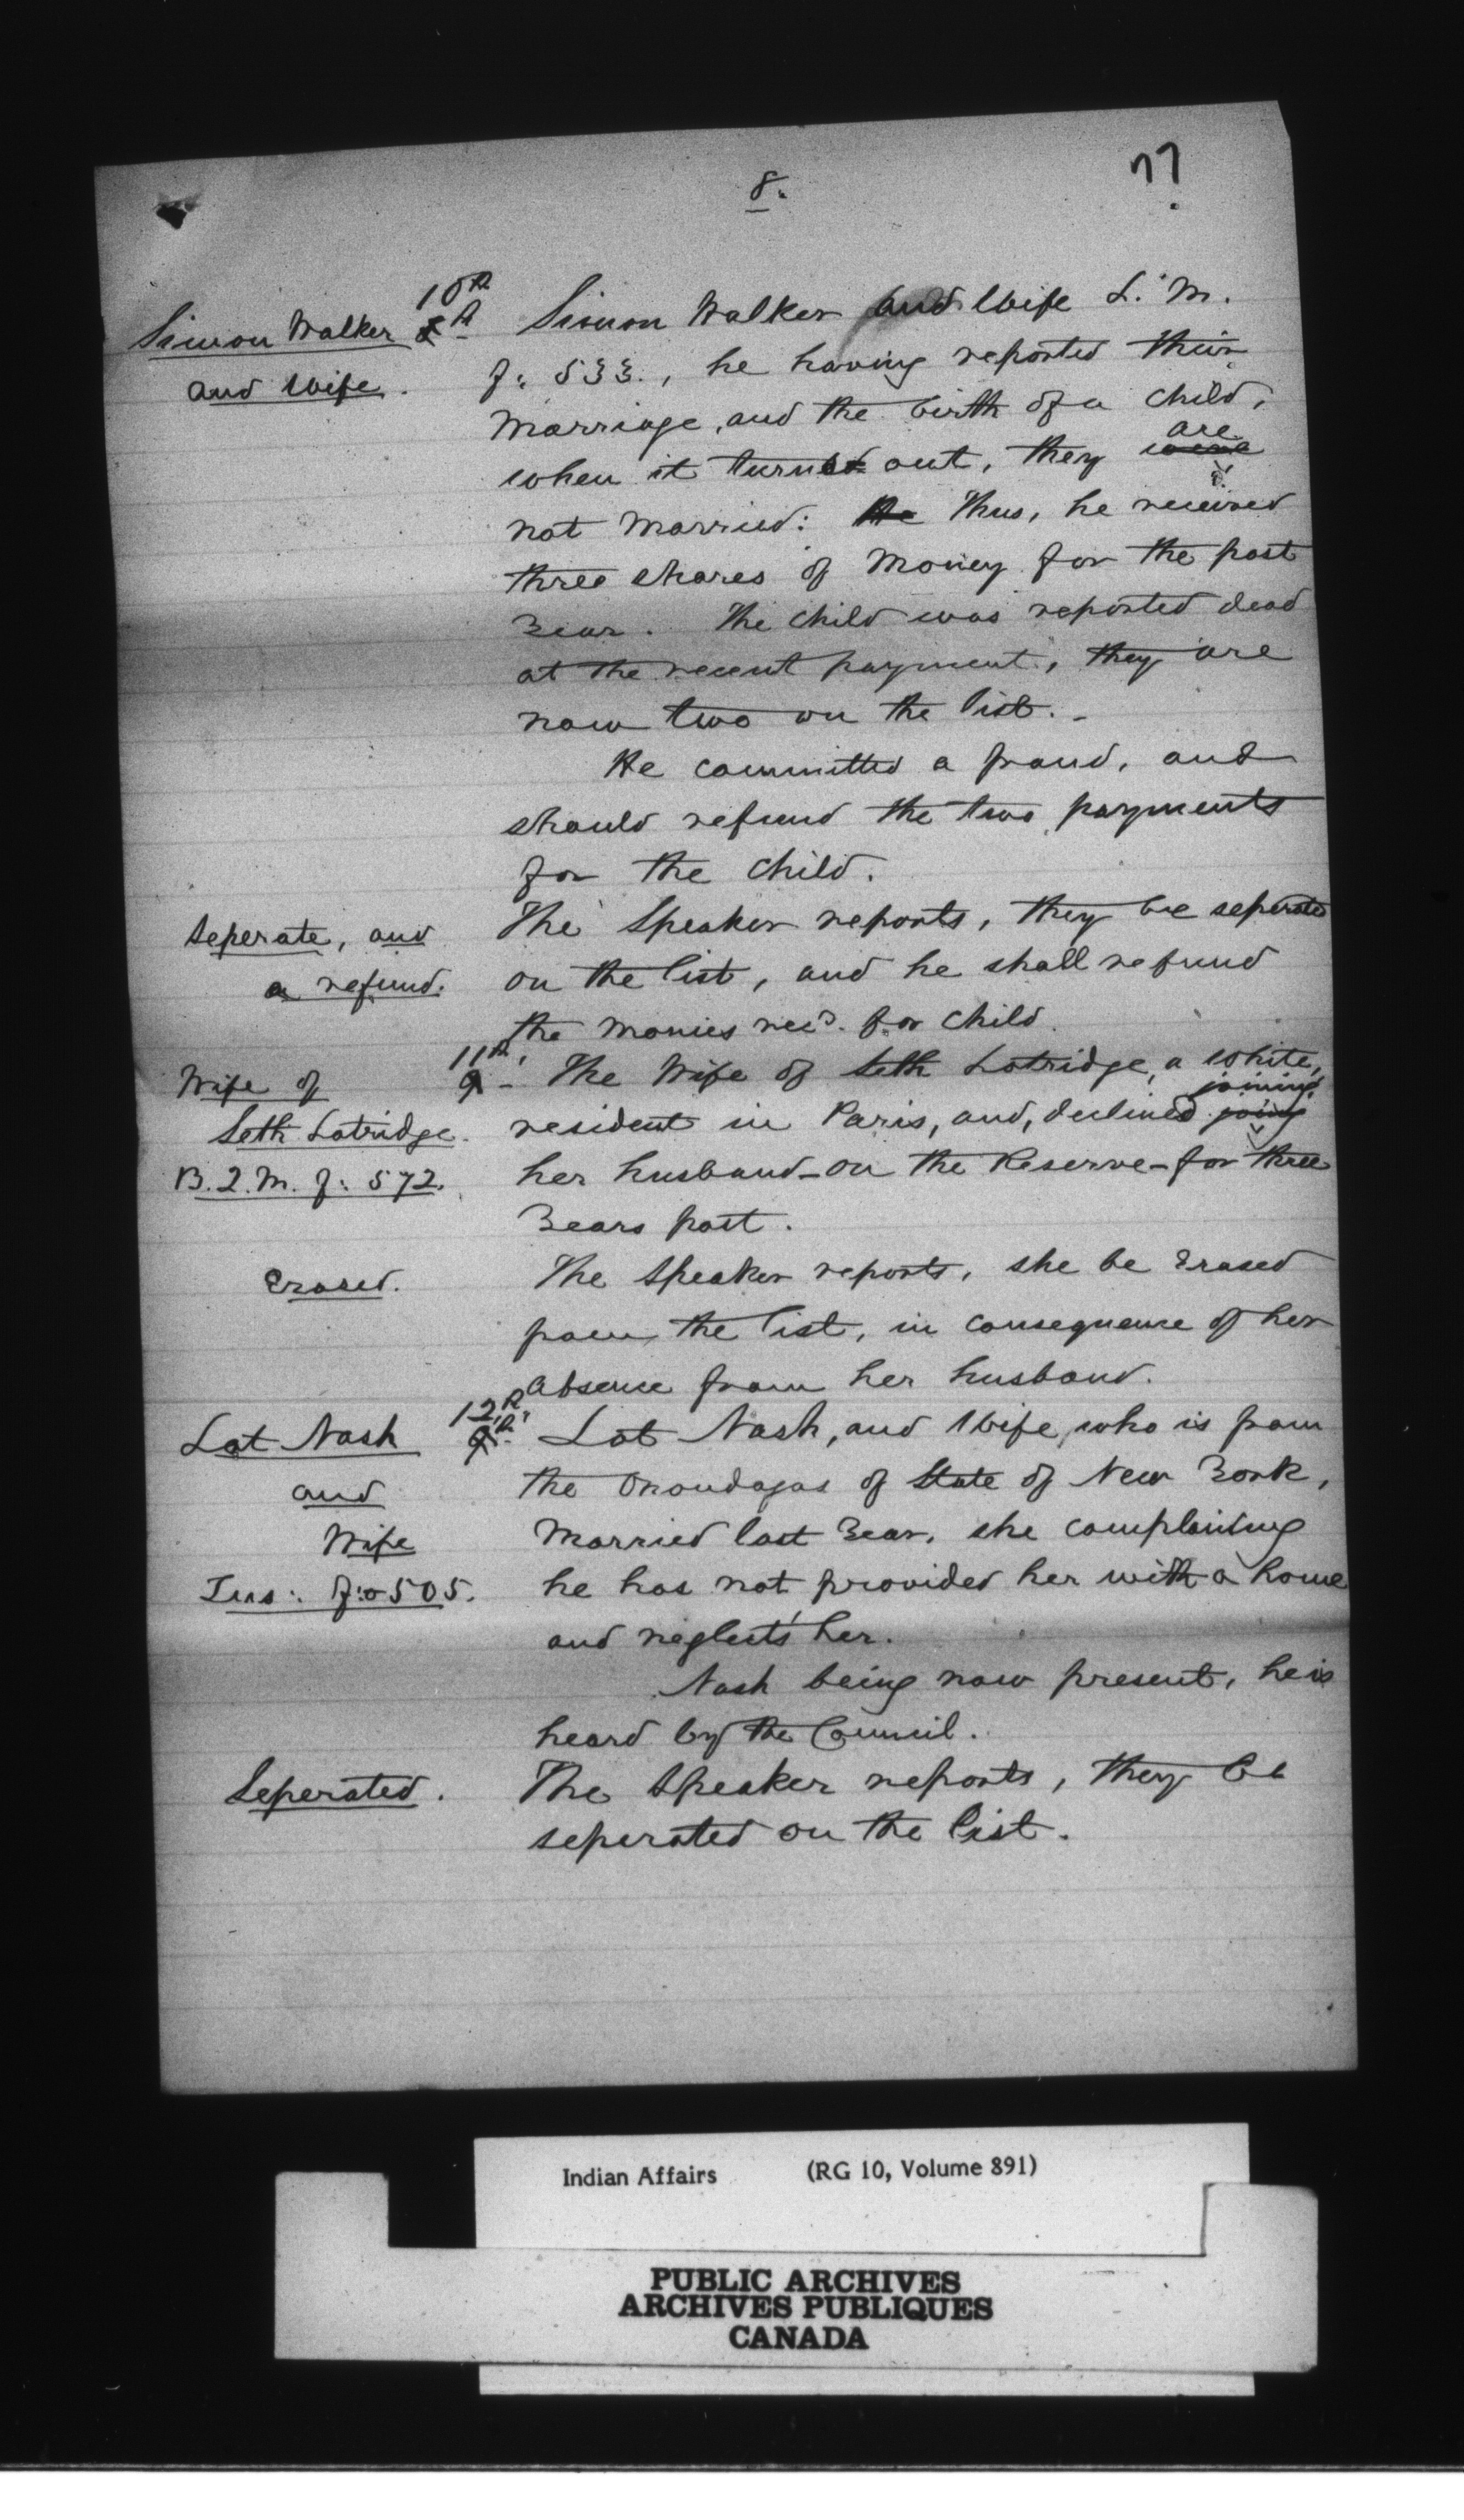 8.
77
Simon Walker
and Wife.
10th
8th
Simon Walker and Wife L. M.
f: 533., he having reported their
Marriage, and the birth of a Child,
are
when it turned out, they were
not Married: He Thus, he received
three shares of Money for the past
Year. The Child was reported dead
at the recent payment, they are
now two on the list. -
He committed a fraud, and
should refund the two payments
for the Child.
Seperate, and
a refund.
The Speaker reports, they be seperate
on the list, and he shall refund
the Monies recd. for Child.
Wife of
Seth Lotridge.
B. 2. M. f: 572.
11th
9 - The Wife of Seth Lotridge, a white,
joining
resident in Paris, and, declined joing
her husband - on the Reserve - for three
Years past.
Erased.
The Speaker reports, she be Erased
from the list, in consequence of her
Absence from her husband.
Lot Nash
and
Wife
Tus: fo 505.
12th
9th
Lot Nash, and Wife, who is from
the Onondagas of State of New York,
Married last Year, she complaining
he has not provided her with a home
and neglects her.
Nash being now present, he is
heard by the Council.
Seperated.
The Speaker reports, they be
seperated on the list.
Indian Affairs (RG 10, Volume 891)
PUBLIC ARCHIVES
ARCHIVES PUBLIQUES
CANADA